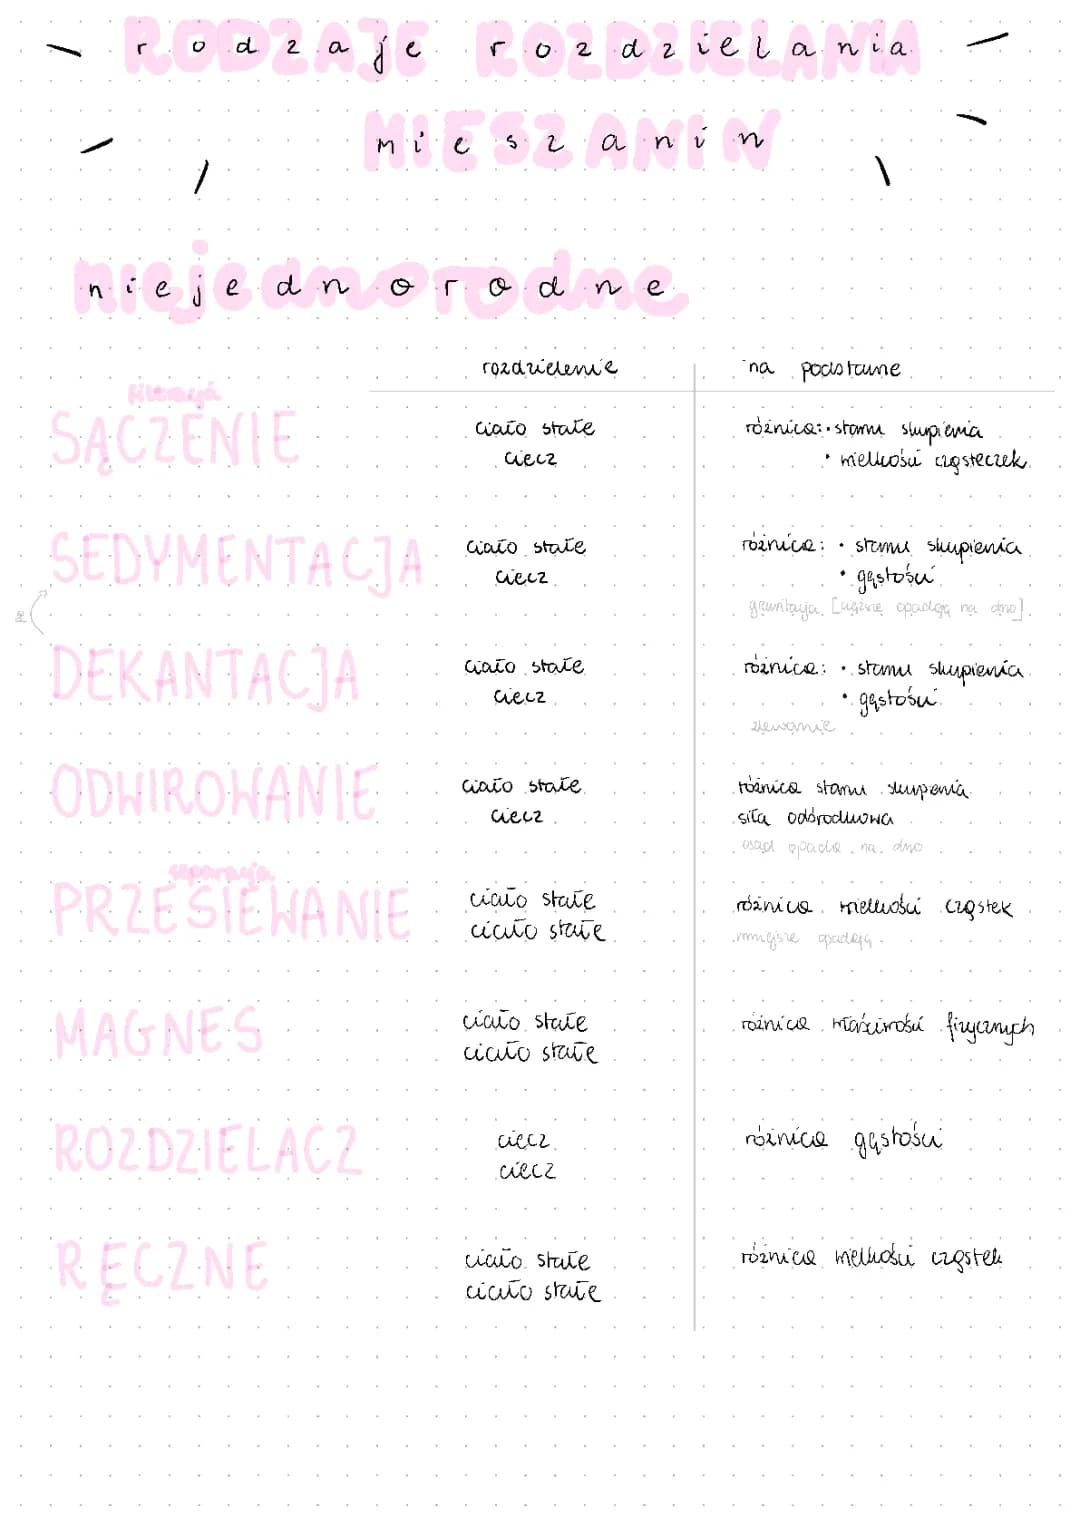 rodzaje rozdzielania
mieszanin
niejednorodne
rozdzielenie na podstawie
filtracja
SĄCZENIE ciało stałe różnica: • stanu skupienia
ciecz • wielkości cząsteczek
SEDYMENTACJA ciało stałe różnica: • stanu skupienia
ciecz • gęstości
grawitacja [cięższe opadają na dno]
DEKANTACJA ciało stałe różnica: • stanu skupienia
ciecz • gęstości
zlewanie
ODWIROWANIE ciało stałe różnica stanu skupienia
ciecz siła odśrodkowa
osad opada na dno
separacja
PRZESIEWANIE ciało stałe różnica wielkości cząstek
ciało stałe mniejsze opadają
MAGNES ciało stałe różnica właściwości fizycznych
ciało stałe
ROZDZIELACZ ciecz różnica gęstości
ciecz
RĘCZNE ciało stałe różnica wielkości cząstek
ciało stałe